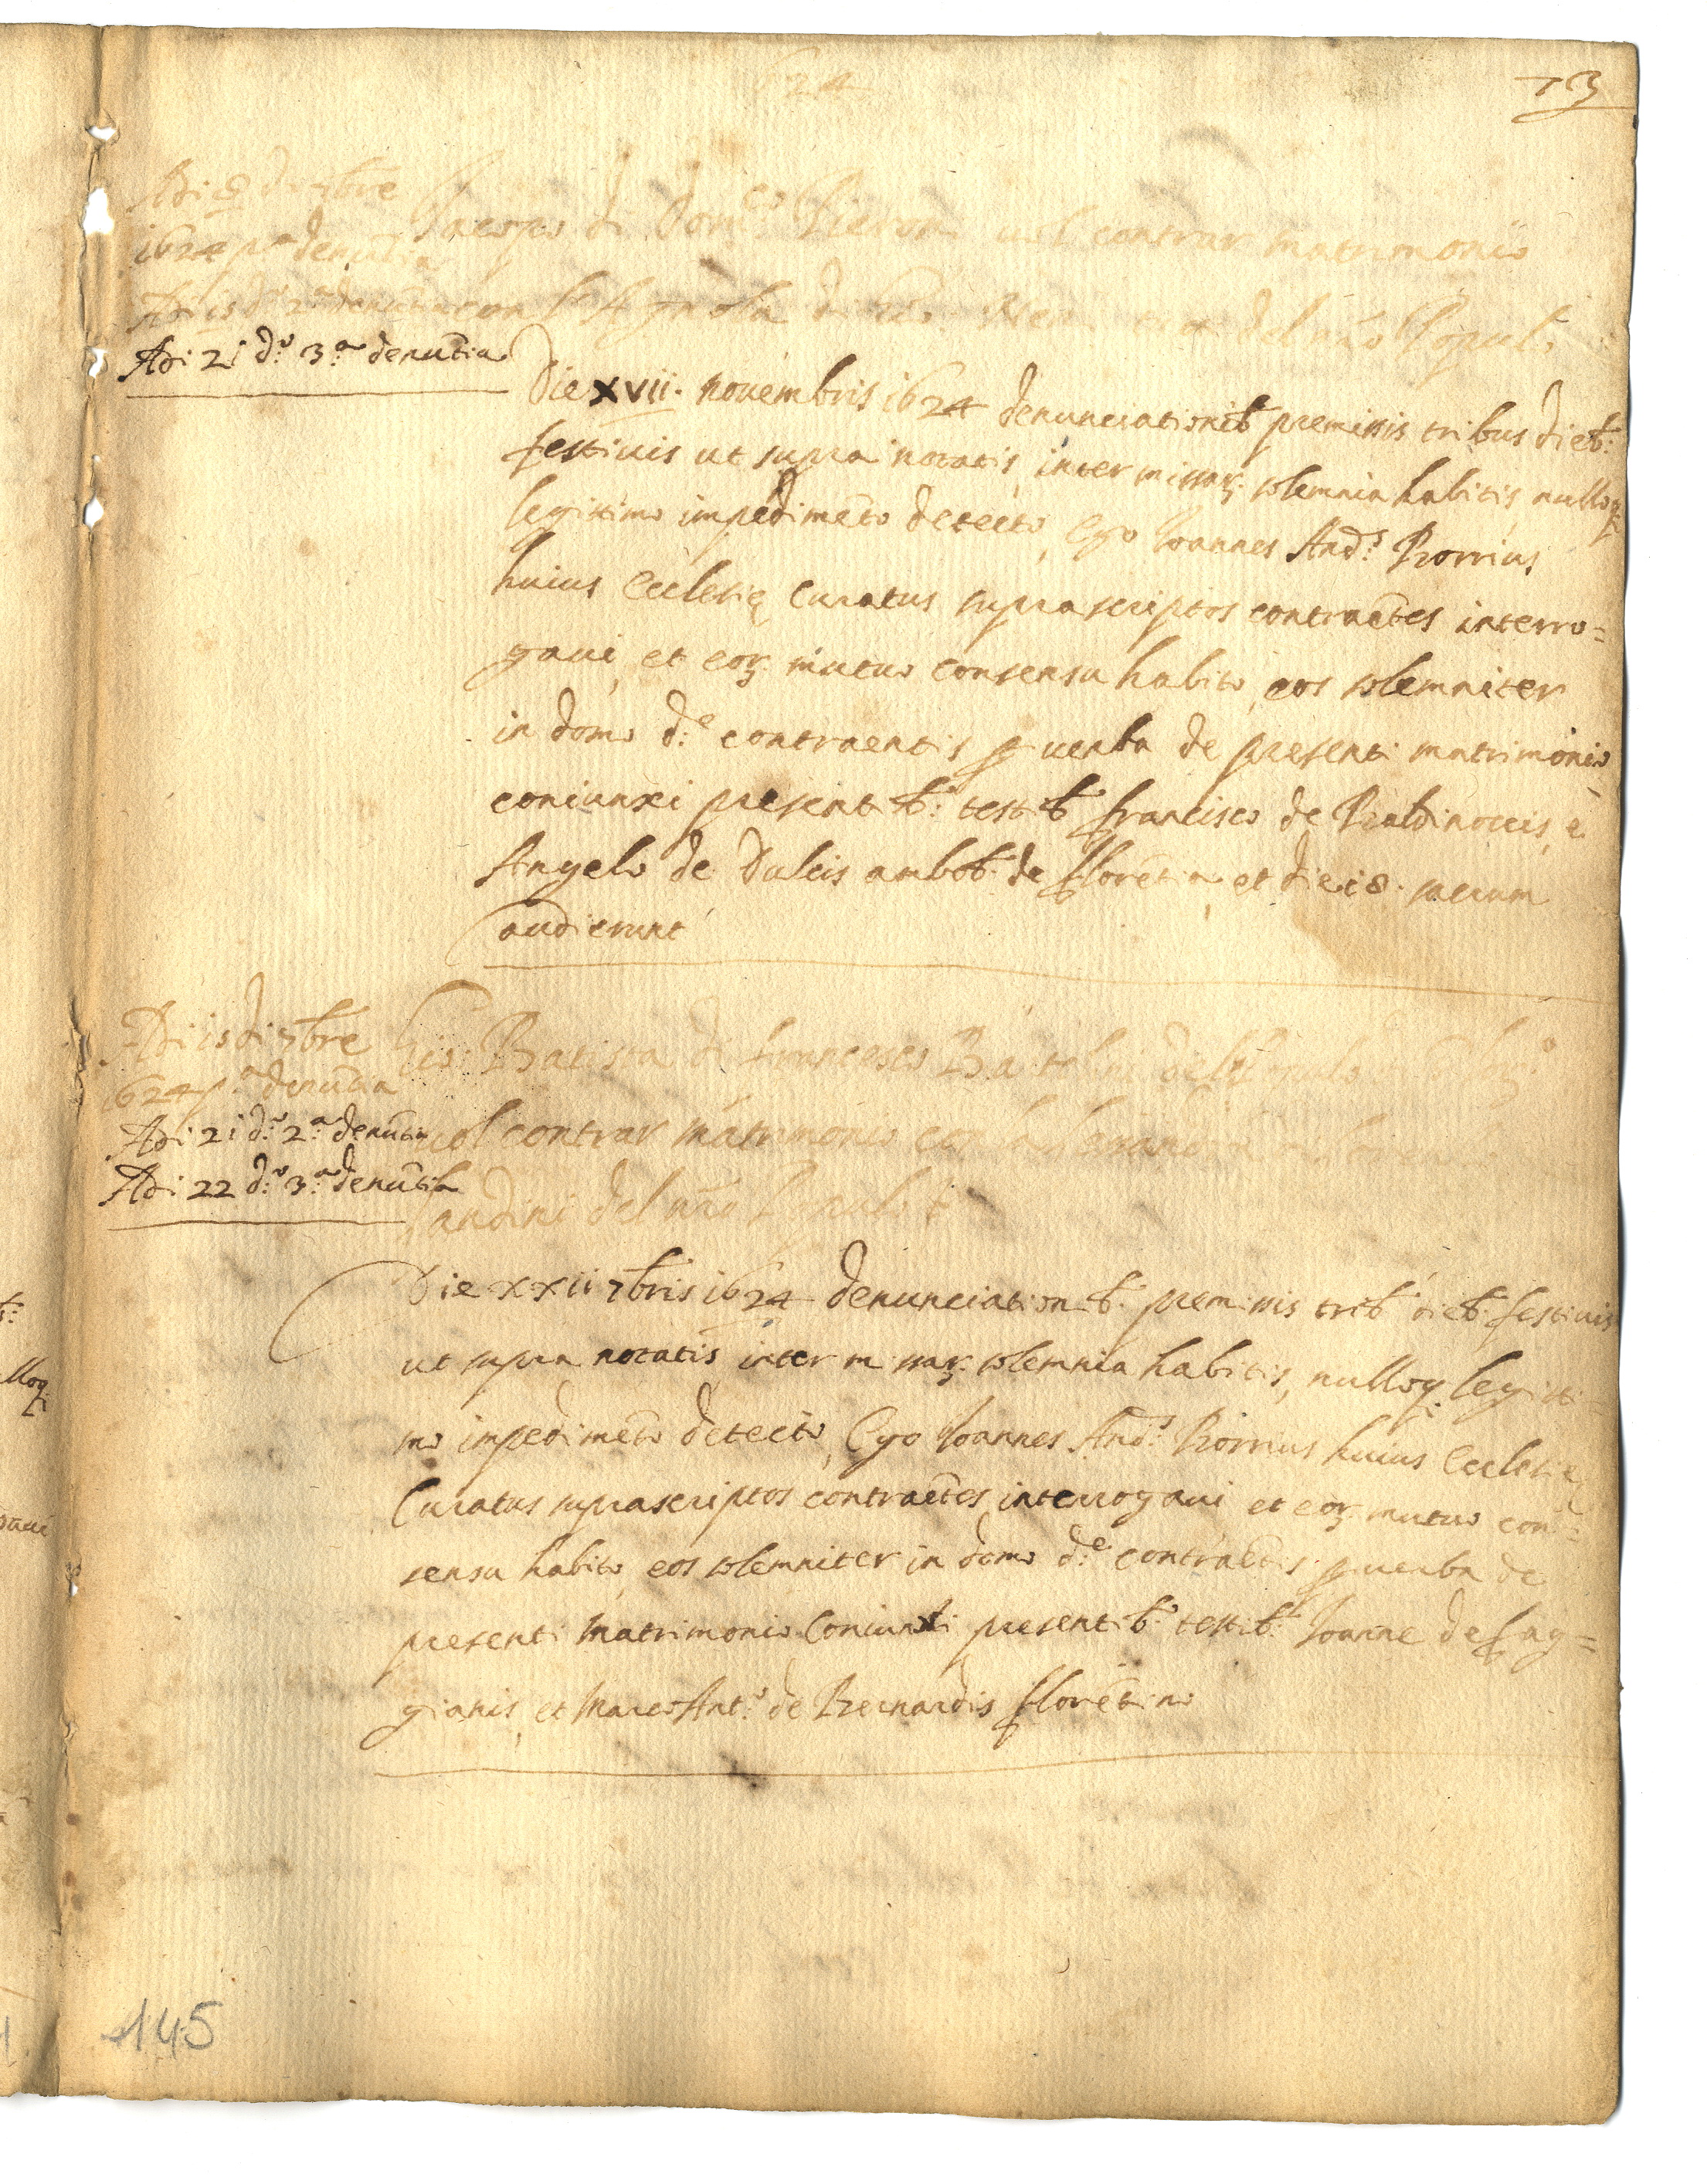 1624
73
Adi 8 di 7bre
1624 pa denũtia
Adi 15 do 2a denũtia
Adi 21 do 3a denũtia
Jacopo di Domco Pieroni uol contrar matrimonio
con la Agnola di del nro Popolo
Die xvii. nouembris 1624 denunciationib premissis tribus dieb:
festiuis ut supra notatis, inter missarz: solemnia habitis nulloq:
legittimo impedimẽto detecto, Ego Joannes Ands: Borrius
huius Ecclesię Curatus suprascriptos contraẽtes interro=
gaui, et eorz mutuo consensu habito, eos solemniter
in domo de: contraentis p uerba de presenti matrimonio
coniunxi presentib: testib francisco de Baldinoccis, e
Angelo de Dulcis ambob: de florẽtia, et die 18. sacrum
audierunt
Adi 15 di 7bre
1624 pa denũtia
Adi 21 do 2a denũtia
Adi 22 do 3a denũtia
Gio: Batista di francesco del Popolo
uol contrar matrimonio con
Landini del nro Popolo
Die xxii 7bris 1624 denunciationib: premissis trib dieb: festiuis
ut supra notatis, inter missarz: solemnia habitis, nulloq: legitti
mo impedimẽto detecto, Ego Joannes Ands: Borrius huius Ecclesię
Curatus suprascriptos contraẽtes interrogaui et eorz: mutuo con=
sensu habito, eos solemniter in domo de: contraẽtis p uerba de
presenti matrimonio Coniunxi presentib: testib: Joanne de fag=
gianis, et Marco Anto: de Bernardis florẽtino
145